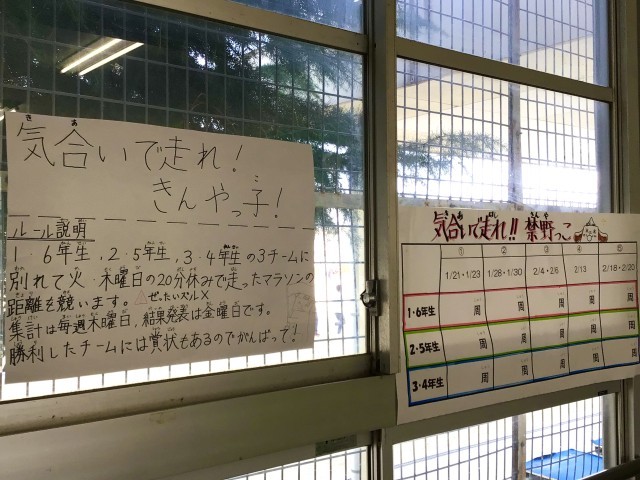 気合いで走れ!
きんやっ子!
ルール説明
1・6年生, 2・5年生, 3・4年生の3チームに
別れて火・木曜日の20分休みで走ったマラソンの
距離を競います。
集計は毎週木曜日, 結果発表は金曜日です。
勝利したチームには賞状もあるのでがんばって!
気合いで走れ!! 禁野っこ
① ② ③ ④ ⑤
1/21・1/23 1/28・1/30 2/4・2/6 2/13 2/18・2/20
1・6年生 周 周 周 周 周
2・5年生 周 周 周 周 周
3・4年生 周 周 周 周 周